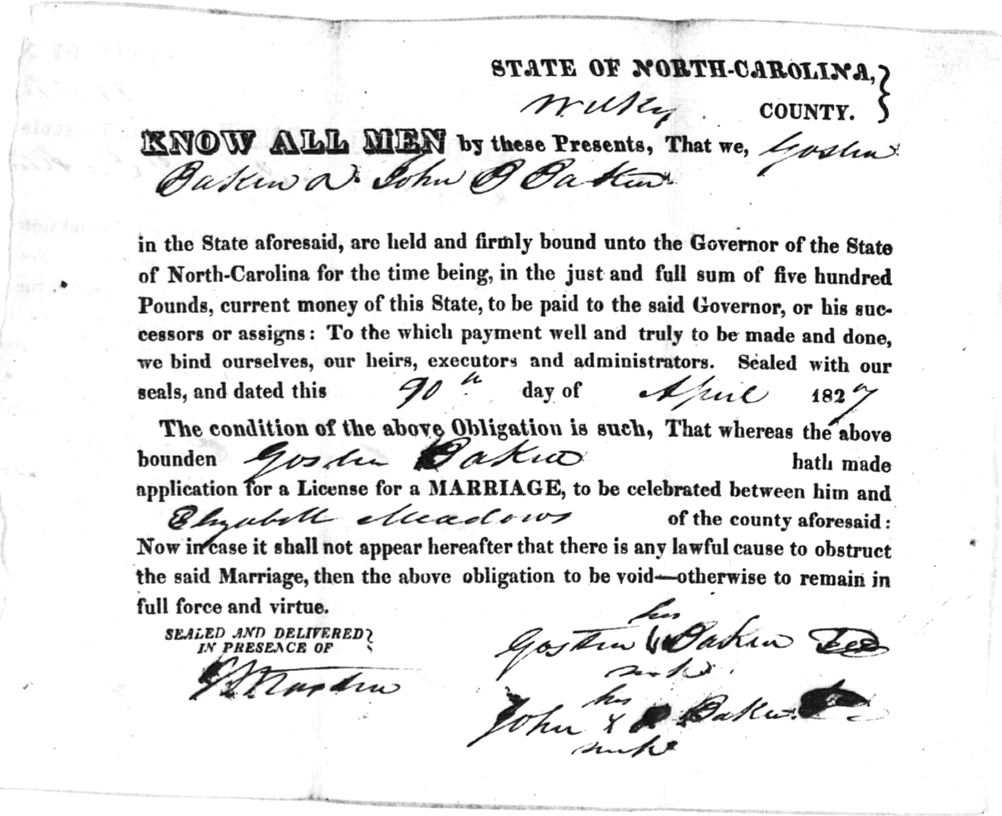 STATE OF NORTH-CAROLINA,
Wilkes COUNTY.
KNOW ALL MEN by these Presents, That we, Gosten
Baker & John P Baker
in the State aforesaid, are held and firmly bound unto the Governor of the State
of North-Carolina for the time being, in the just and full sum of five hundred
Pounds, current money of this State, to be paid to the said Governor, or his suc-
cessors or assigns: To the which payment well and truly to be made and done,
we bind ourselves, our heirs, executors and administrators. Sealed with our
seals, and dated this day of April 1827
The condition of the above Obligation is such, That whereas the above
bounden Gosten Baker hath made
application for a License for a MARRIAGE, to be celebrated between him and
Elizabeth Meadows of the county aforesaid:
Now in case it shall not appear hereafter that there is any lawful cause to obstruct
the said Marriage, then the above obligation to be void—otherwise to remain in
full force and virtue.
SEALED AND DELIVERED
IN PRESENCE OF
his
Gosten Baker
mark
his
John X Baker
mark